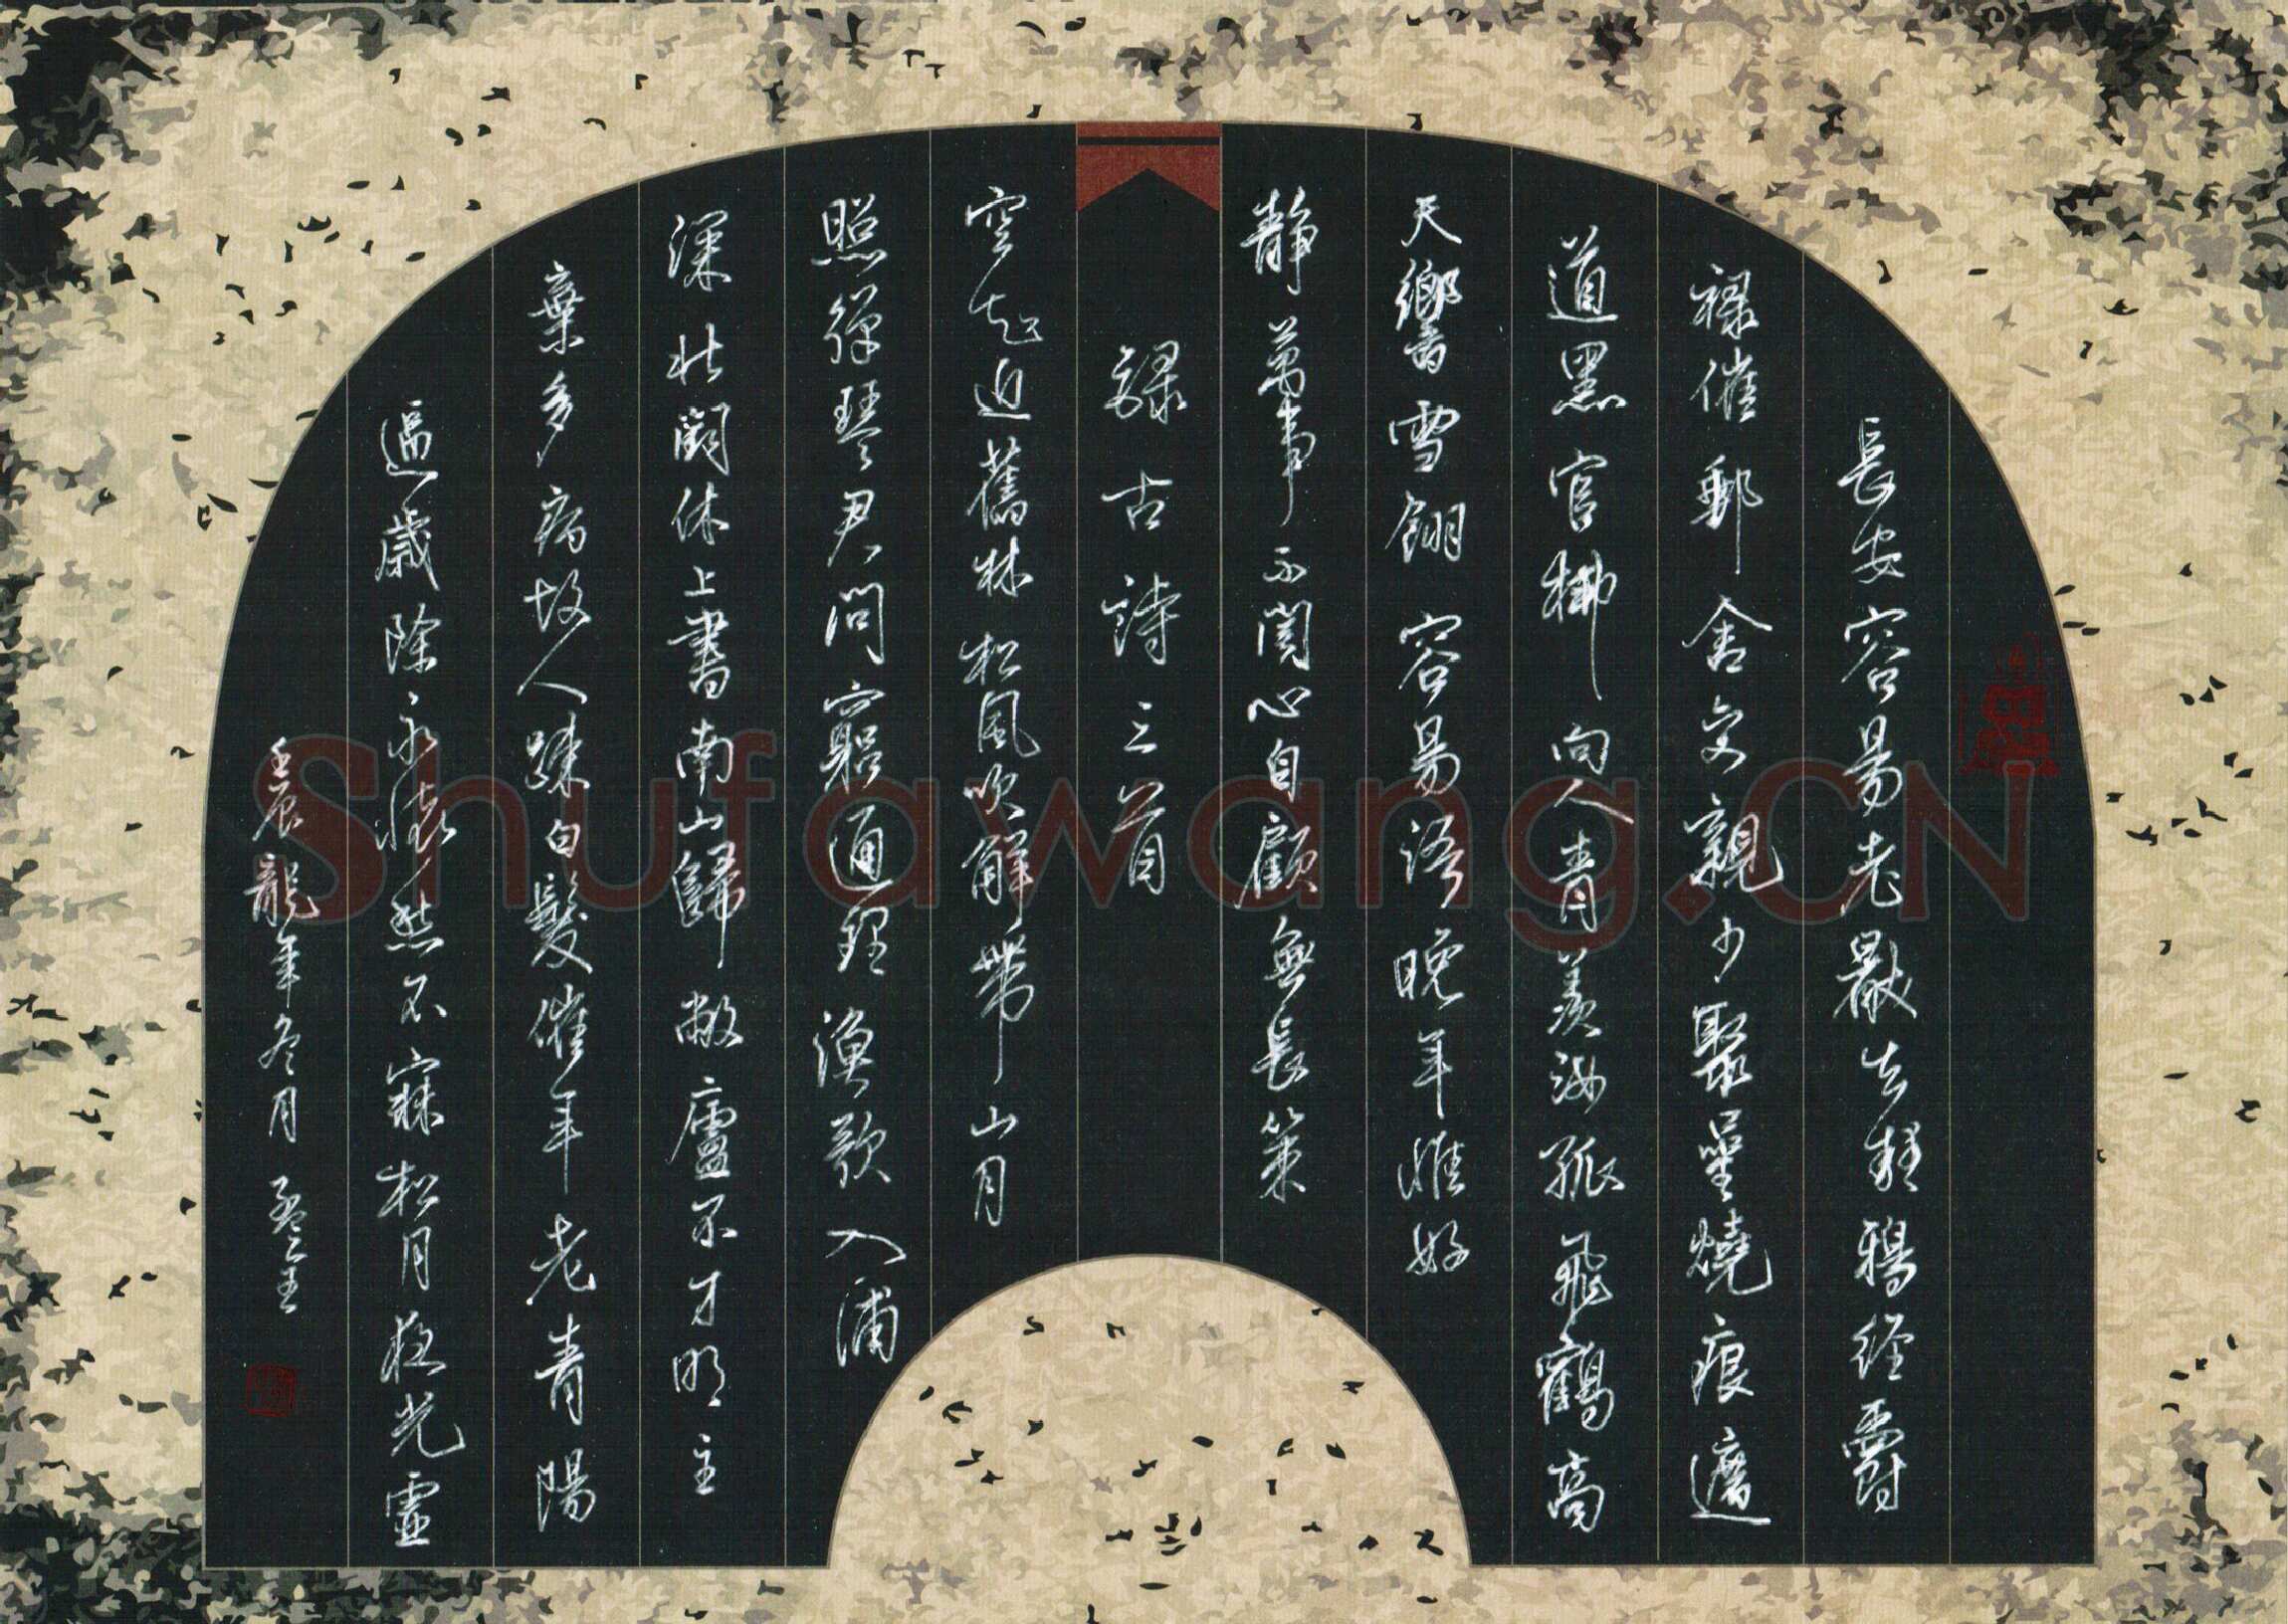 長安容易老去鴉経爵
禄催郵舍交親少聚星燒痕遮
道黑官柳向人青羨汝孤飛鶴高
天響雪翎容易語晚年惟好
静萬事不関心自顧無長策
録古詩三首
空知返舊林松風吹解帶山月
照彈琴君問窮通理漁歌入浦
深北闕休上書南山歸敝廬不才明主
棄多病故人疎白髮催年老青陽
逼歲除永懷愁不寐松月夜虚
壬辰龍年冬月
Shufawang.CN